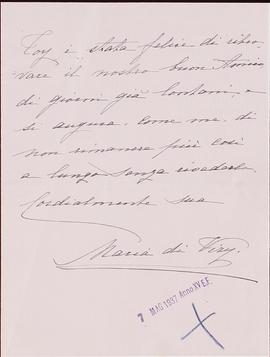 Toy è stata felice di ritro-
vare il nostro buon Amico
di giorni già lontani, e
si augura, come me, di
non rimanere più così
a lungo senza rivederla.
Cordialmente sua
Maria di Viry.
7 MAG 1937 Anno XV E.F.